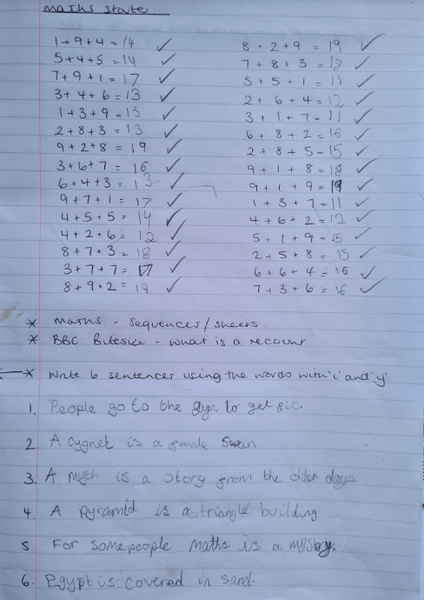 maths starter
1+9+4=14 ✓
5+4+5=14 ✓
7+9+1=17 ✓
3+4+6=13 ✓
1+3+9=13 ✓
2+8+3=13 ✓
9+2+8=19 ✓
3+6+7=16 ✓
6+4+3=13 ✓
9+7+1=17 ✓
4+5+5=14 ✓
4+2+6=12 ✓
8+7+3=18 ✓
3+7+7=17 ✓
8+9+2=19 ✓
8+2+9=19 ✓
7+8+3=18 ✓
5+5+1=11 ✓
2+6+4=12 ✓
3+1+7=11 ✓
6+8+2=16 ✓
2+8+5=15 ✓
9+1+8=18 ✓
9+1+9=19 ✓
1+3+7=11 ✓
4+6+2=12 ✓
5+1+9=15 ✓
2+5+8=15 ✓
6+6+4=16 ✓
7+3+6=16 ✓
* maths - sequences/sheets.
* BBC Bitesize - what is a recount
* Write 6 sentences using the words with 'i' and 'y'
1. People go to the gym to get fit.
2. A cygnet is a female swan
3. A myth is a story from the olden days
4. A pyramid is a triangle building
5 For some people maths is a mystery.
6. Egypt is covered in sand.